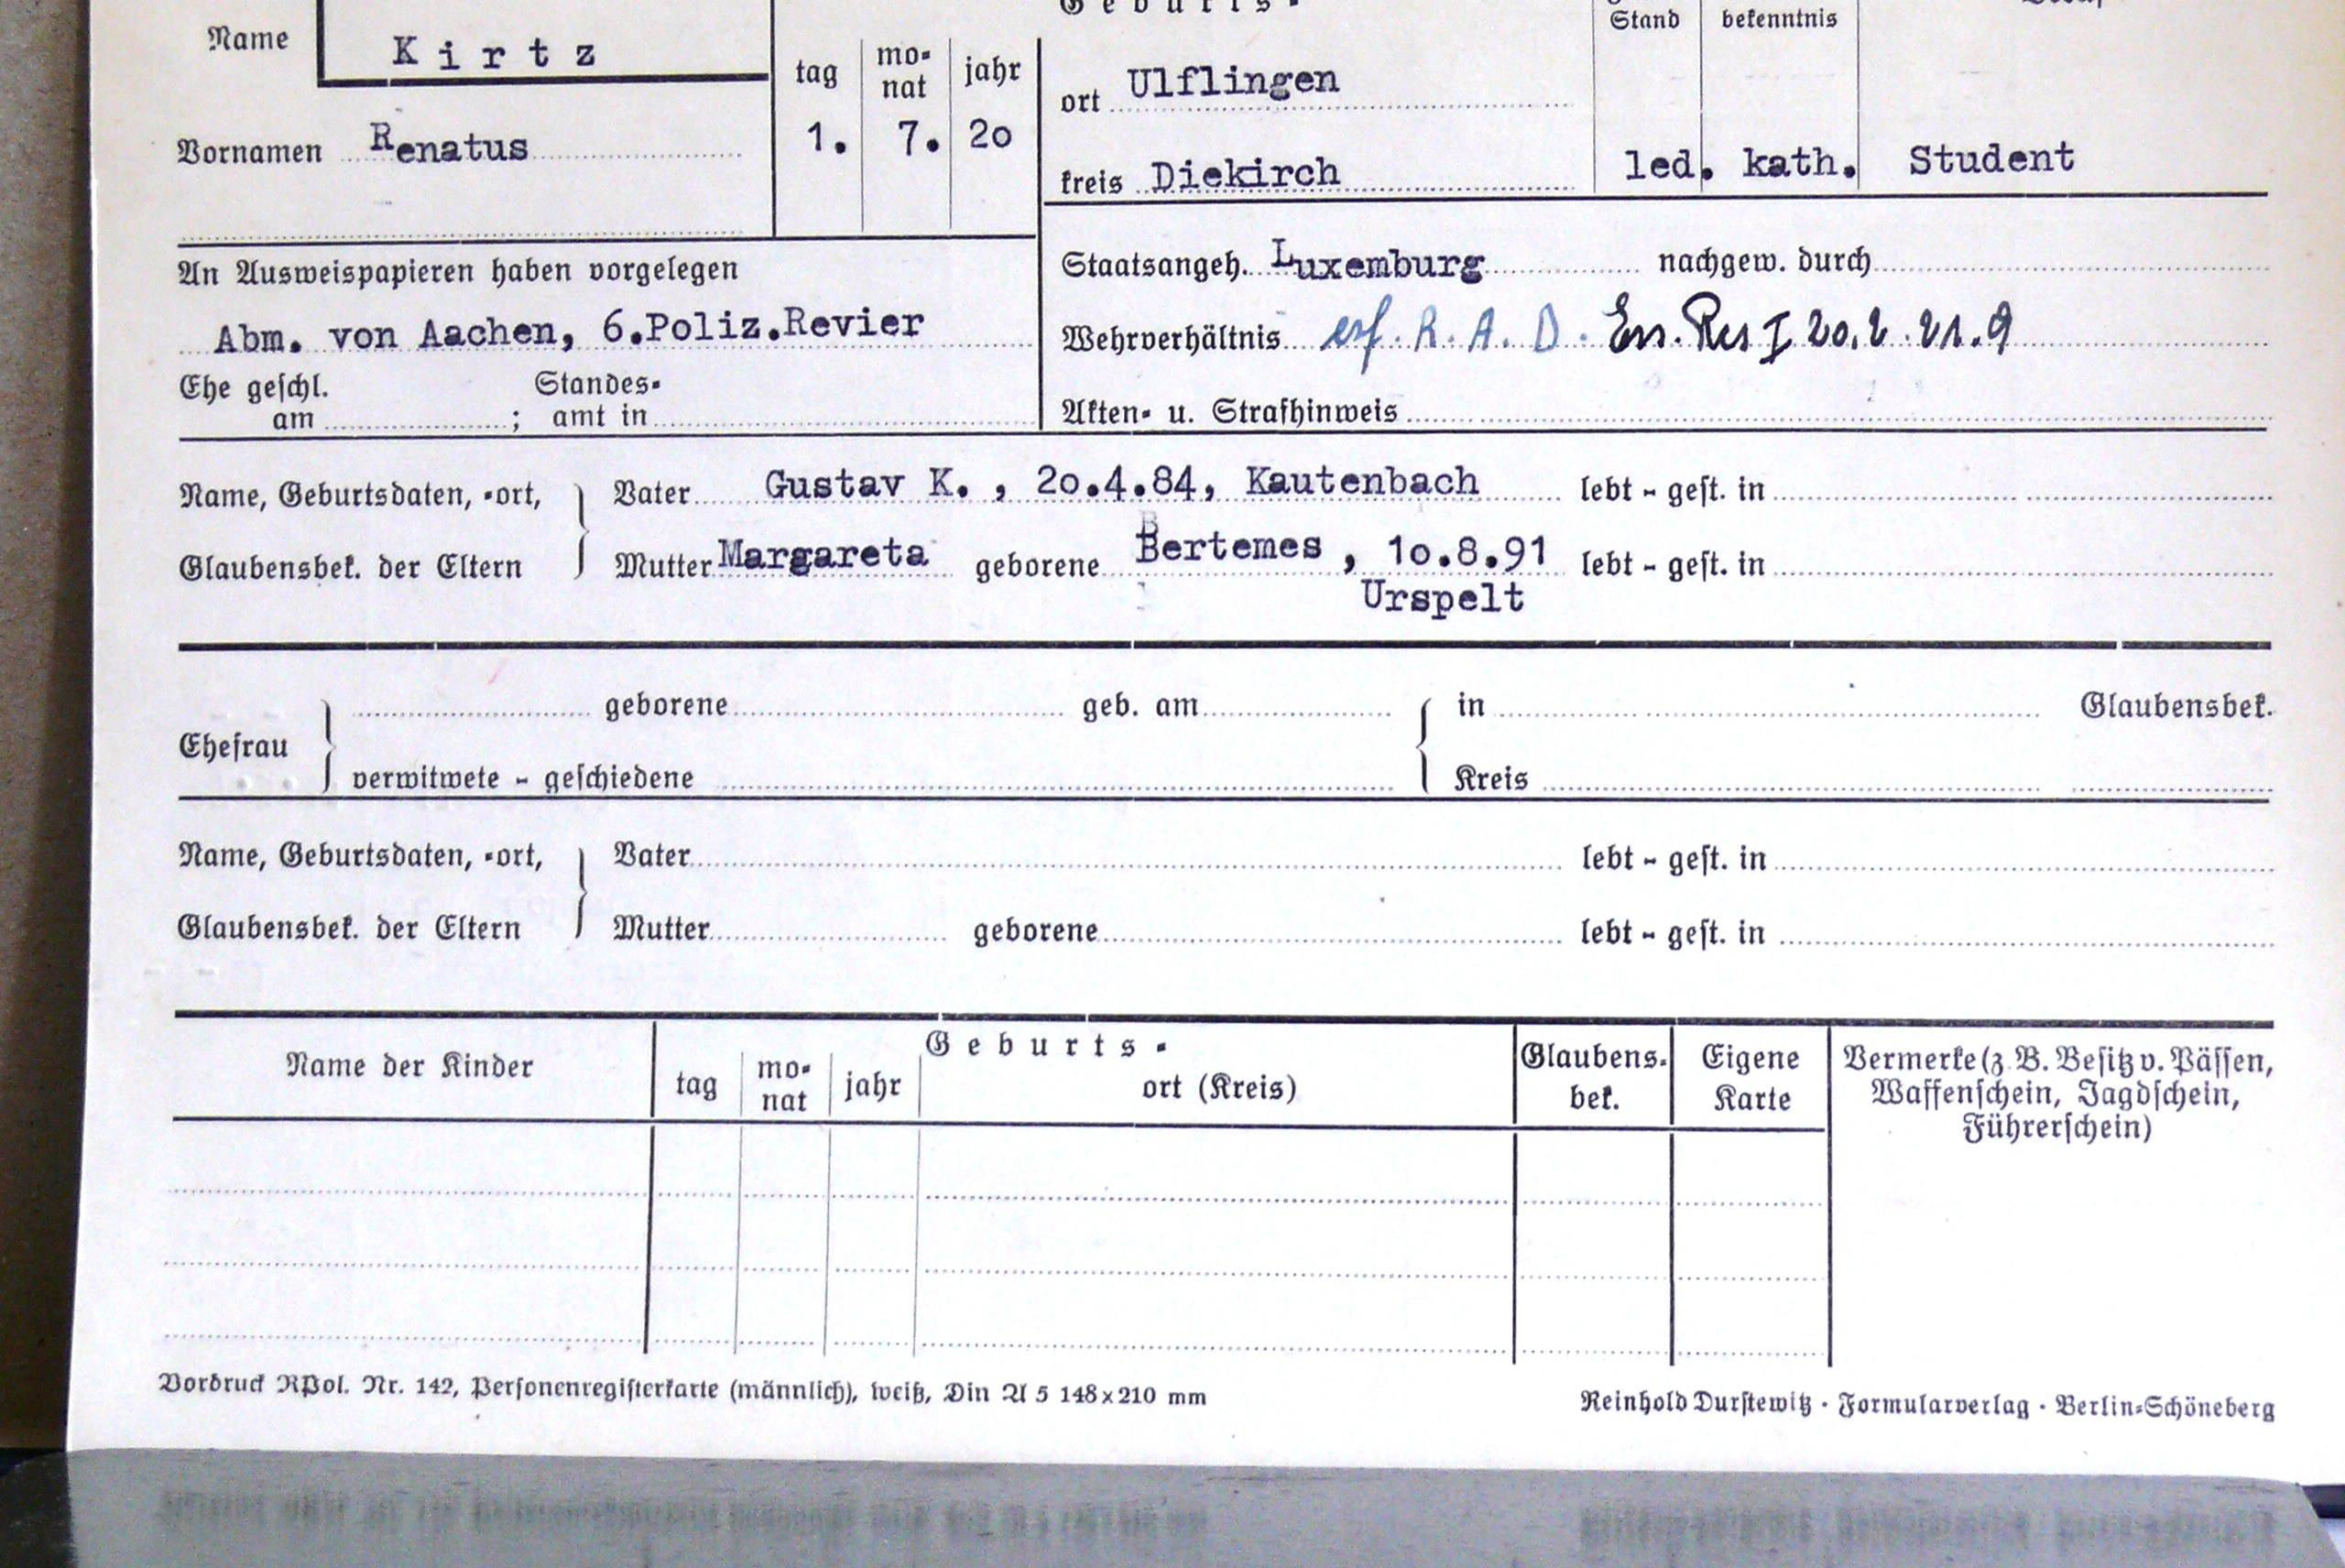 Geburts-
Name Kirtz
tag monat jahr
Stand bekenntnis
ort Ulflingen
Vornamen Renatus
1. 7. 20
kreis Diekirch
led. kath. Student
An Ausweispapieren haben vorgelegen
Abm. von Aachen, 6.Poliz.Revier
Ehe geschl. am ; Standesamt in
Staatsangeh. Luxemburg nachgew. durch
Wehrverhältnis erf. R. A. D. Ers. Res I 20.2.21.9
Akten- u. Strafhinweis
Name, Geburtsdaten, -ort,
Vater Gustav K. , 20.4.84, Kautenbach lebt - gest. in
Glaubensbek. der Eltern
Mutter Margareta geborene Bertemes , 10.8.91 lebt - gest. in
Urspelt
Ehefrau
geborene geb. am in Glaubensbek.
verwitwete - geschiedene Kreis
Name, Geburtsdaten, -ort,
Vater lebt - gest. in
Glaubensbek. der Eltern
Mutter geborene lebt - gest. in
Name der Kinder
Geburts-
tag monat jahr ort (Kreis)
Glaubensbek.
Eigene Karte
Vermerke (z. B. Besitz v. Pässen,
Waffenschein, Jagdschein,
Führerschein)
Vordruck RPol. Nr. 142, Personenregisterkarte (männlich), weiß, Din A 5 148 x 210 mm
Reinhold Durstewitz · Formularverlag · Berlin-Schöneberg